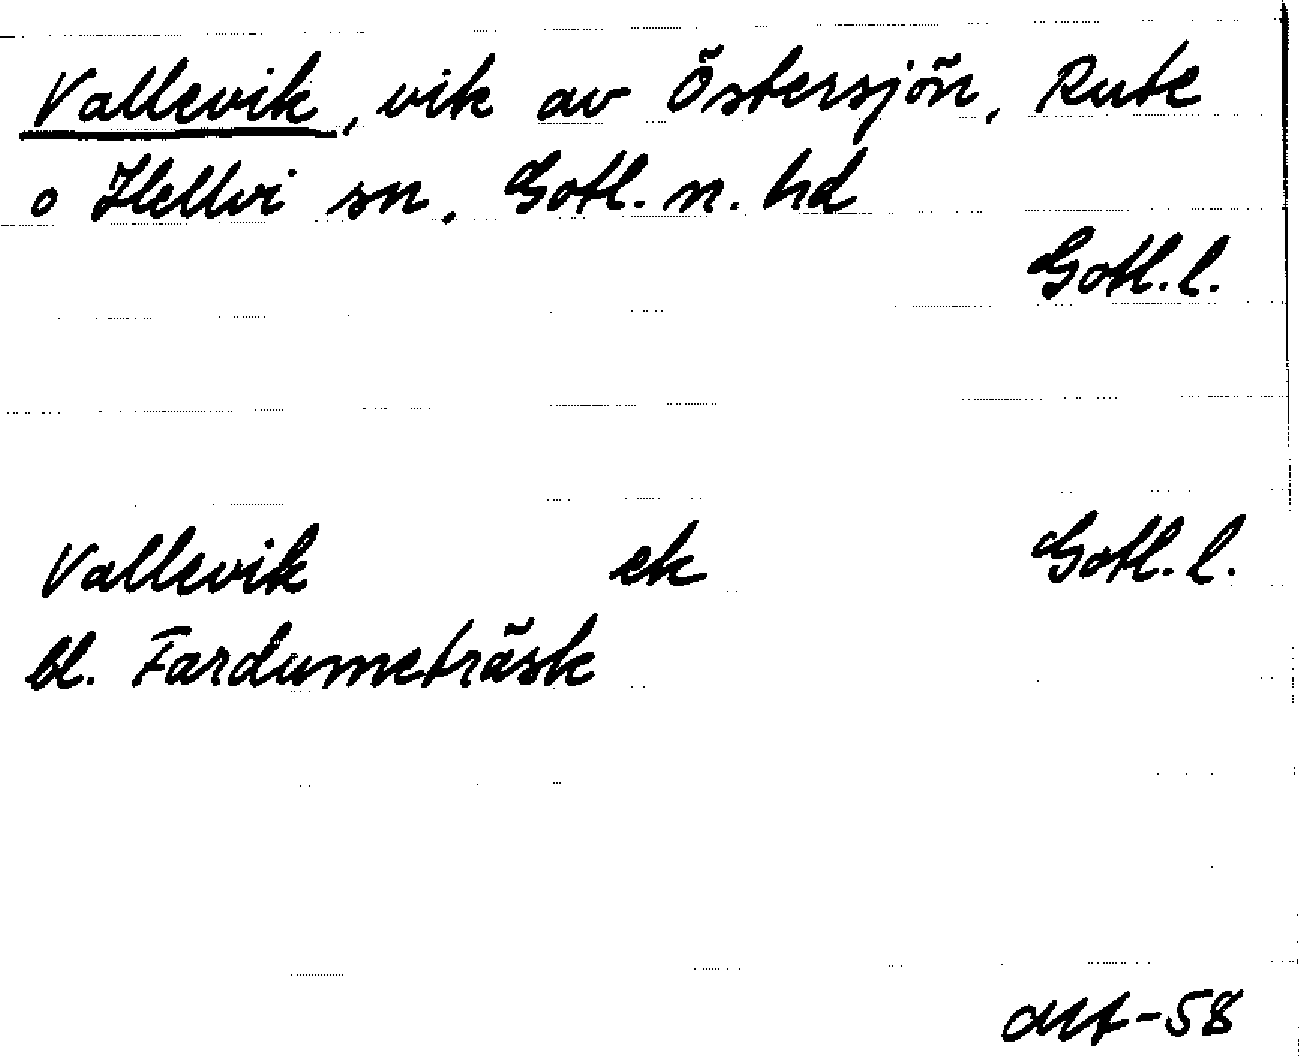 Vallevik, vik av Östersjön, Rute
o Hellvi sn. Gotl. n. hd
Gotl. l.
Vallevik ek Gotl. l.
bl. Fardumeträsk
-58